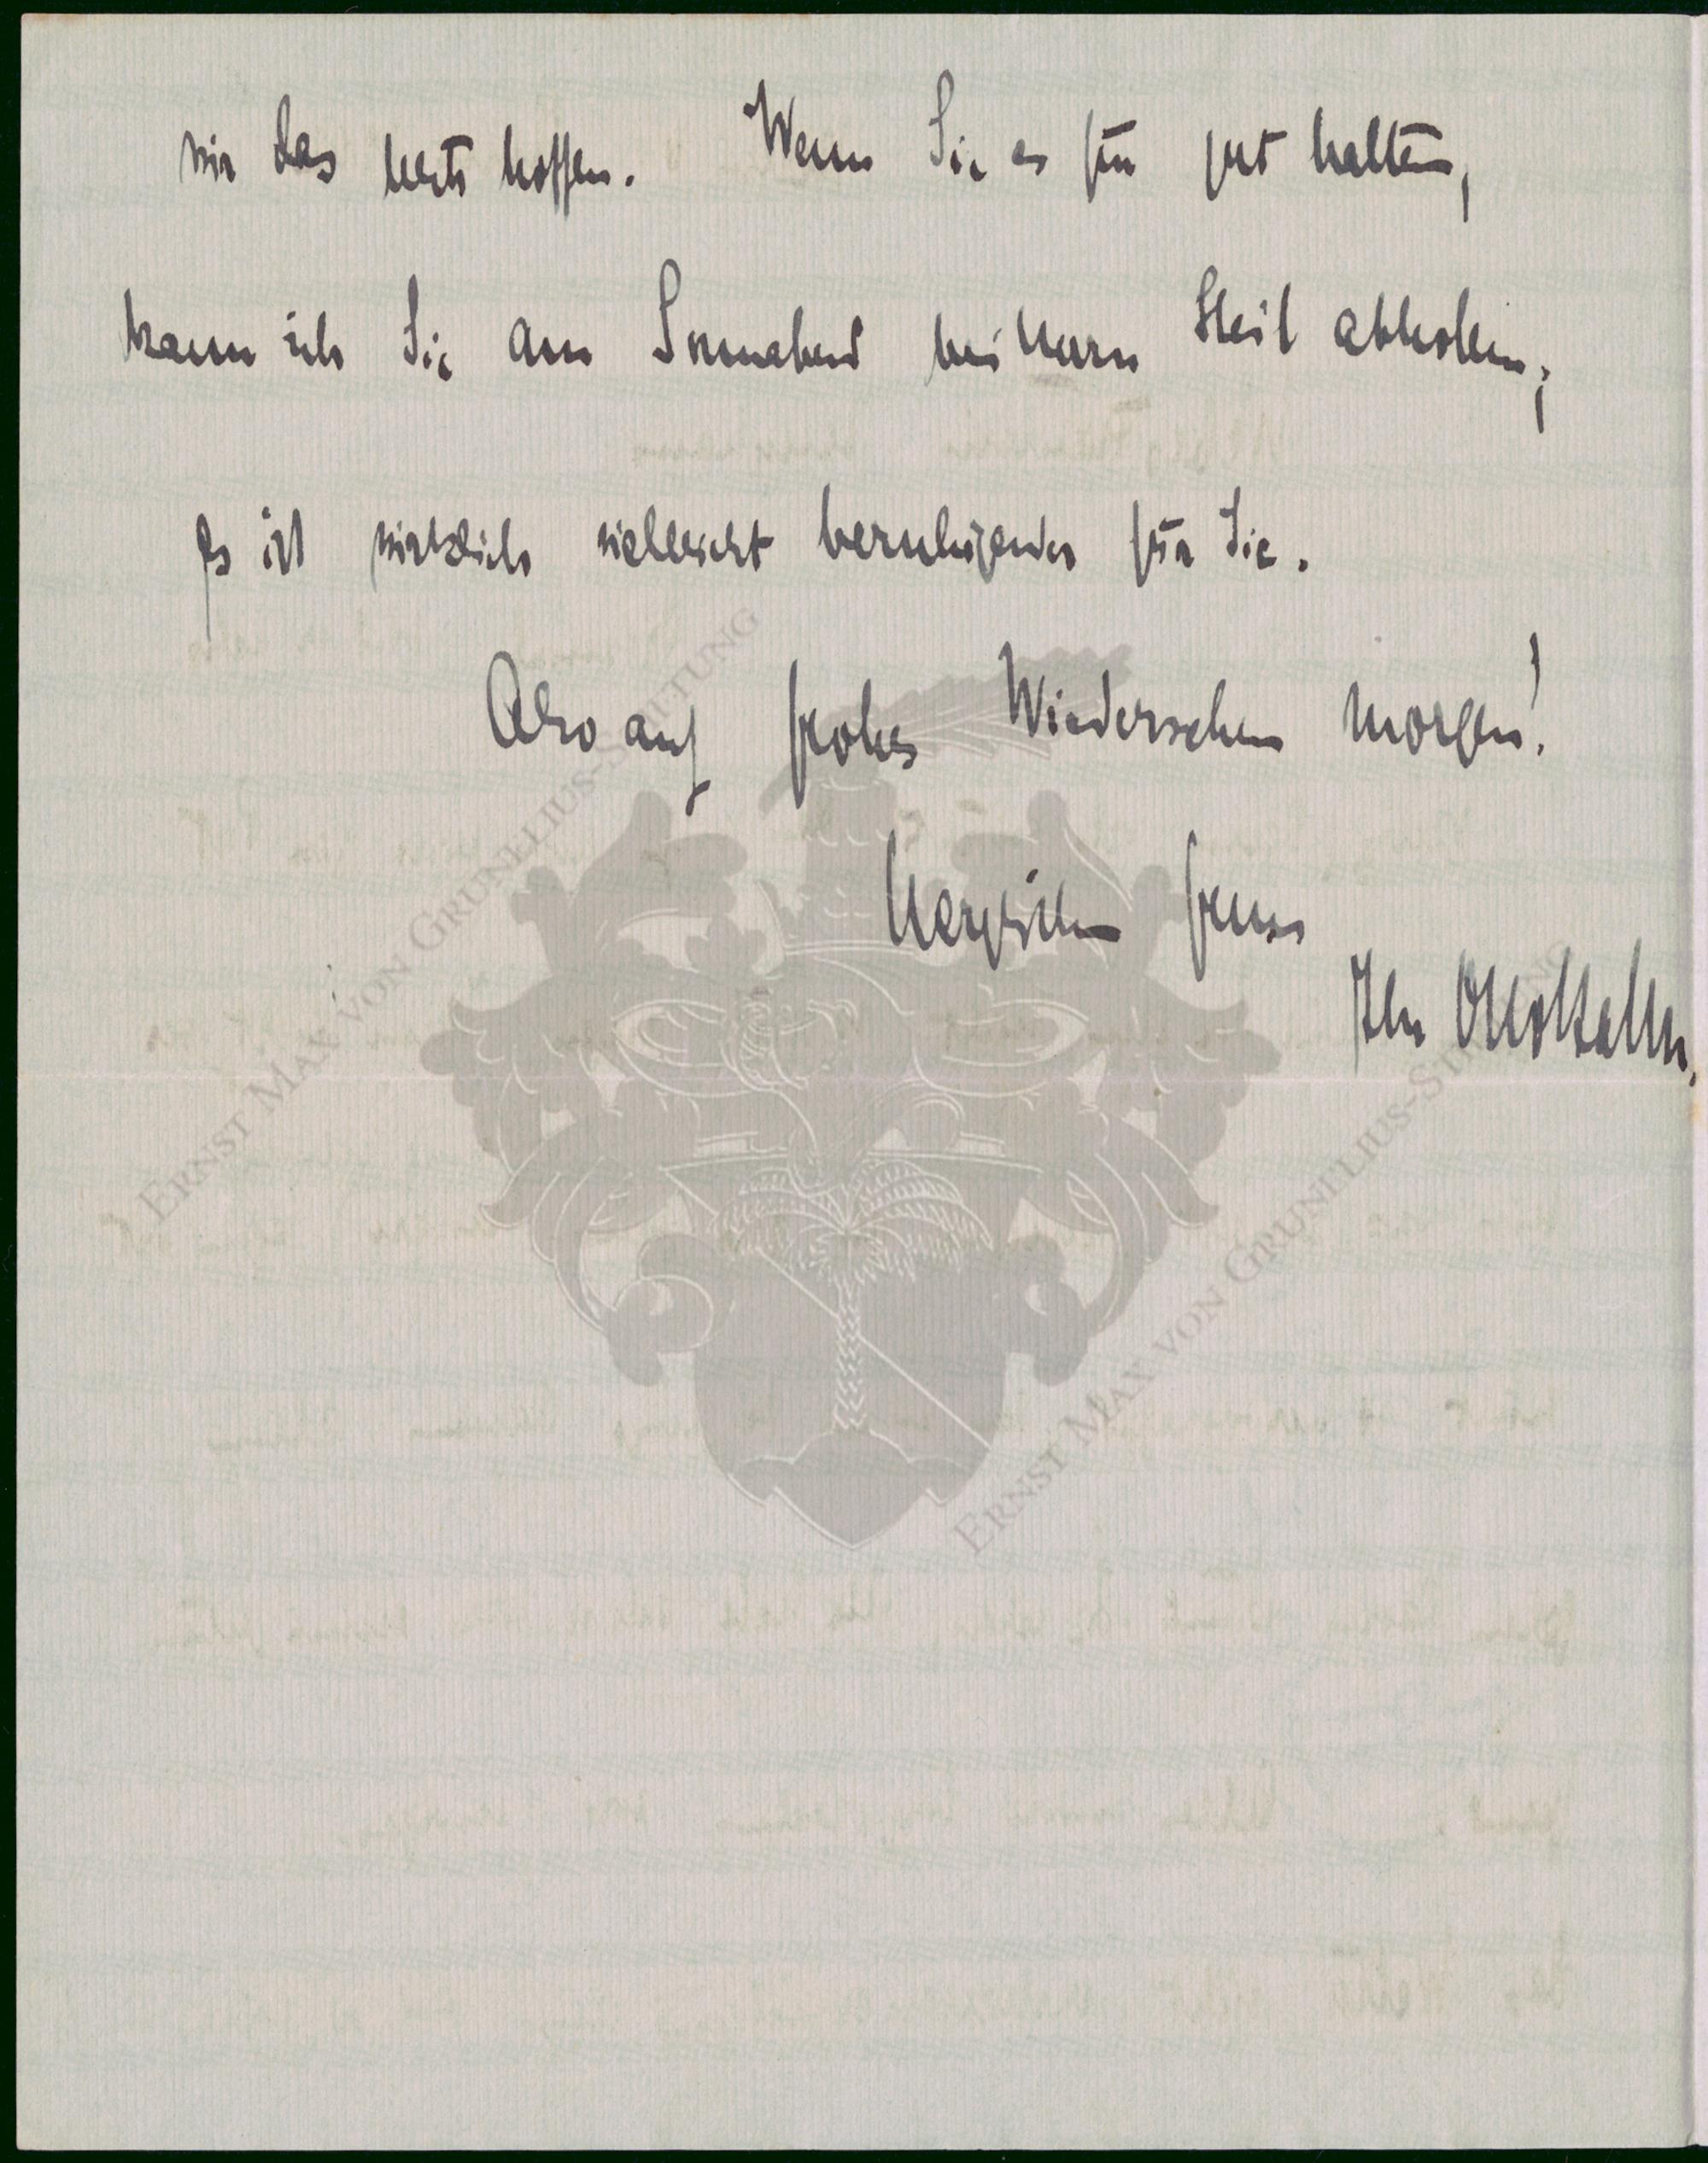 wir das beste hoffen. Wenn Sie es für gut halten,
kann ich Sie am Sonnabend bei Herrn Steil abholen;
es ist wirklich vielleicht beruhigender für Sie.
Also auf frohes Wiedersehen morgen!
Herzlichen Gruss
Ihr
ERNST MAX VON GRUNELIUS-STIFTUNG
ERNST MAX VON GRUNELIUS-STIFTUNG